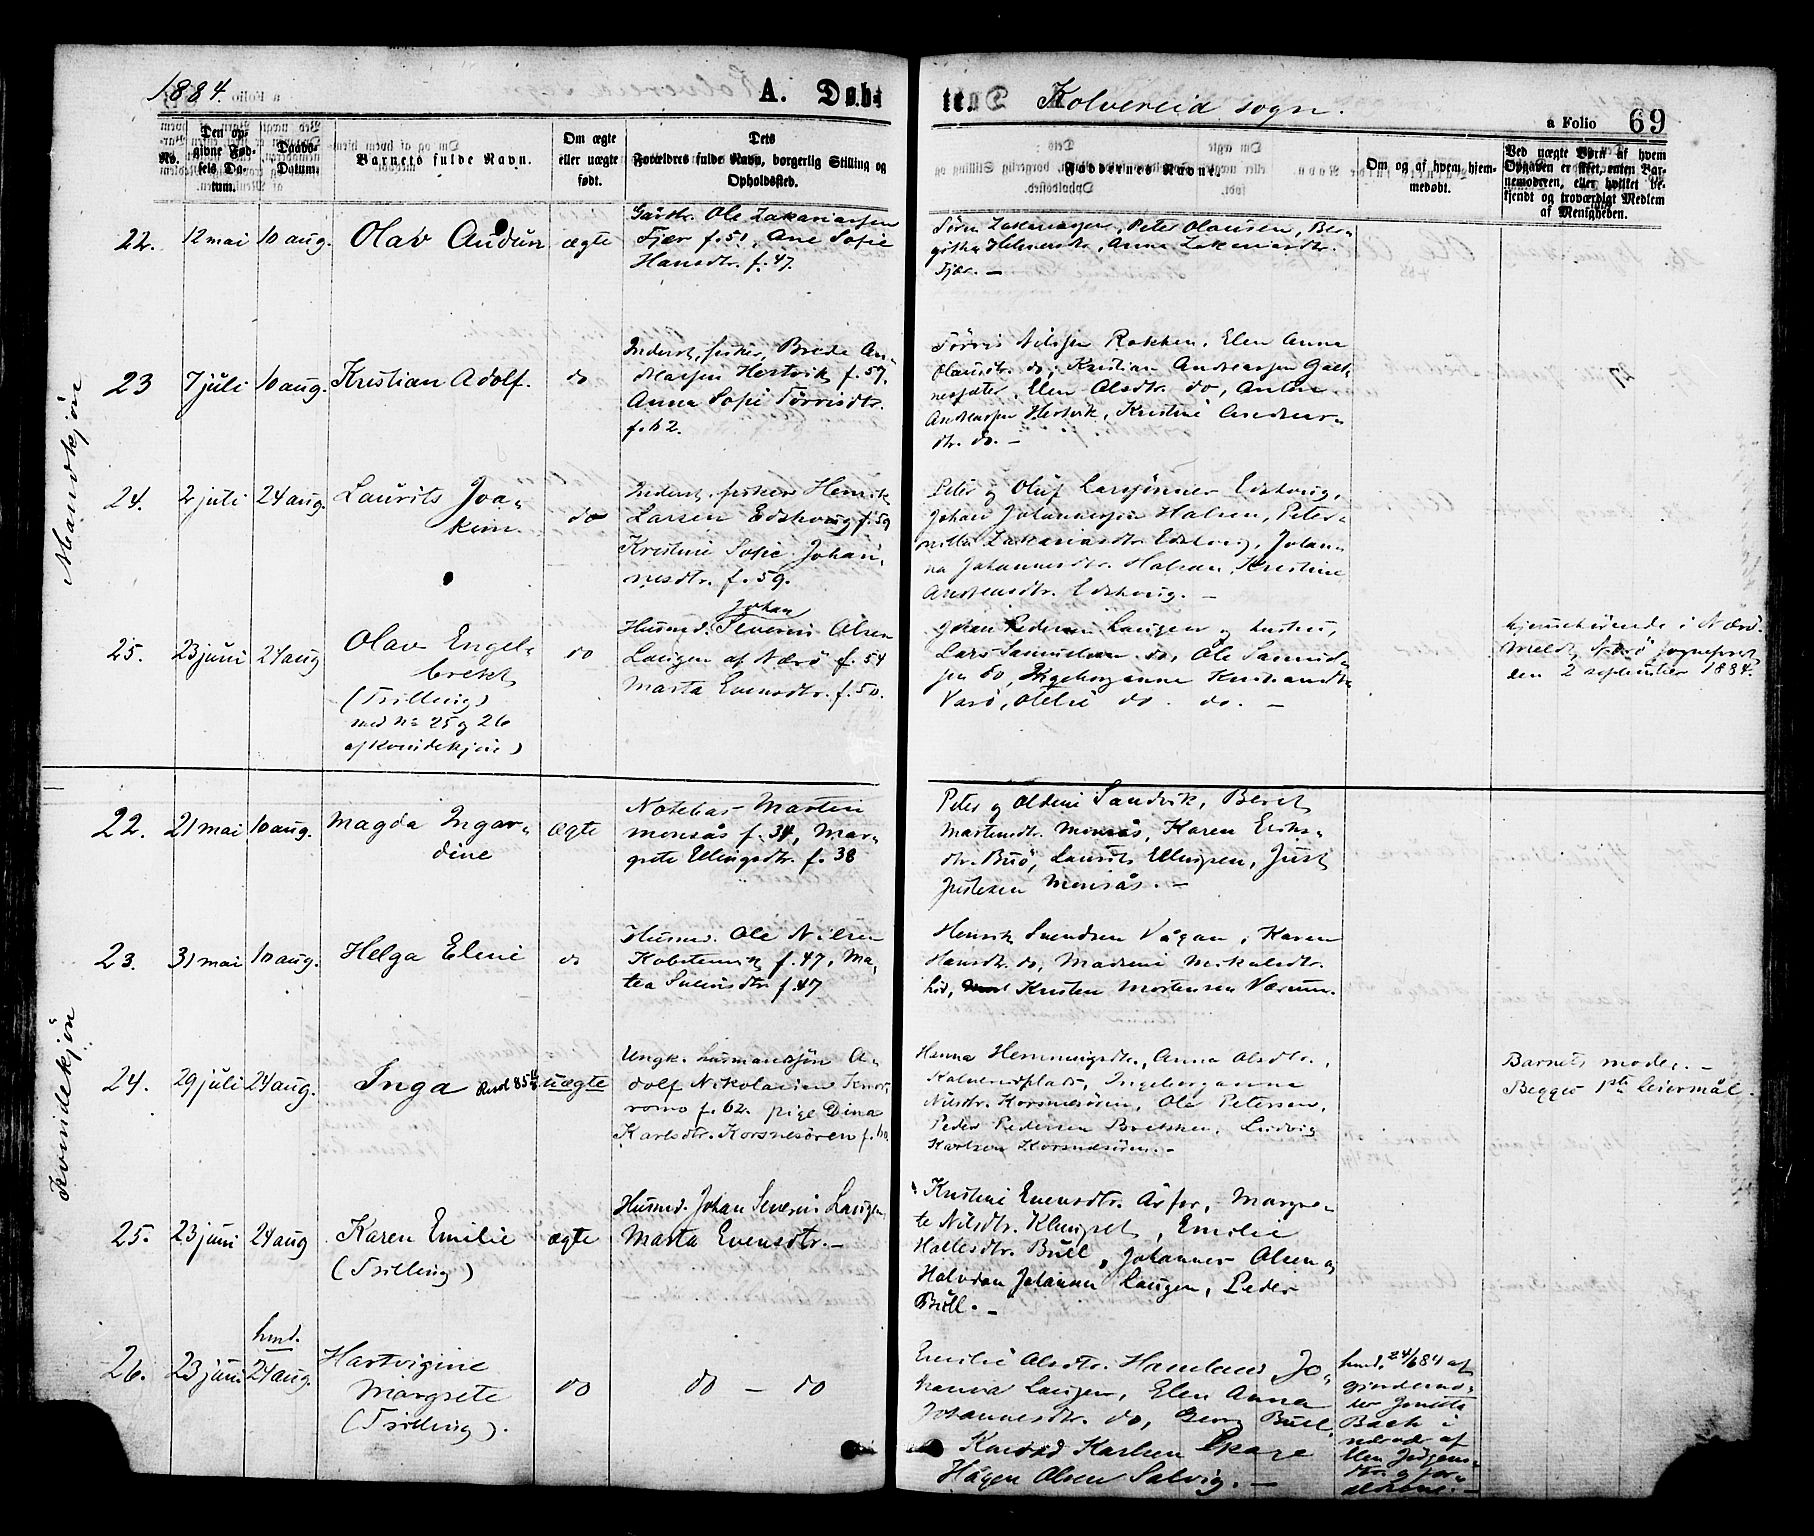 1884.
A. Døb-
te.
Kolvereid sogn.
a Folio 69
No.
Den op-
givne Fød-
sels Da-
tum.
Daabs-
Datum.
Barnets fulde Navn.
Om ægte
eller uægte
født.
Dets
Forældres fulde Navn, borgerlig Stilling og
Opholdssted.
Faddernes Navne.
Om og af hvem hjem-
medøbt.
Ved uægte Børn af hvem
Opgaven er skeet, enten Bar-
nemoderen, eller hvilket be-
kjendt og troværdigt Medlem
af Menigheden.
Mandkjøn
22. 12 mai 10 aug. Olav Audun ægte
Gårdbr. Ole Zakariassen
Fjær f. 51, Ane Sofie
Hansdtr. f. 47.
Søren Zakariassen, Peter Olausen, Ber-
Anna Zakariasdtr.
Fjær. —
23 7 juli 10 aug. Kristian Adolf. do
Inderst, fisker, Brede An-
dreassen Hestvik f. 57,
Anna Sofie Tørrisdtr.
f. 62.
Tørris Nilssen Rokken, Elen Anna
Olausdtr. do, Kristian Andreassen Galt-
nesæter, Elen Olsdtr. do, Anton
Andreassen Hestvik, Kristine Andreas-
dtr. do. —
24. 2 juli 24 aug. Laurits Joa-
kim. do
Inderst, fisker Henrik
Larsen Edshoug f. 59
Kristine Sofie Johan-
nesdtr. f. 59.
Peter og Oluf Larssønner Edshoug,
Johan Johannessen Halsen, Peter-
nille Zakariasdtr. Edshoug, Johan-
na Johannesdtr. Halsen, Kristine
Andreasdtr. Edshoug. —
25. 23 juni 24 aug Olav Engel-
brekt do
(Trilling)
med No 25 og 26
af Kvindekjøn)
Johan
Husmd. Severin Olsen
Laugen af Nærø f. 54
Marta Evensdtr. f. 50.
Johan Pedersen Laugen og hustru,
Lars Samuelsen do, Ole Samuel-
sen do, Ingeborganna Kristiansdtr.
Varø, Otelie do. do. —
hjemmehørende i Nærø.
Meldt Nærø sogneprest
den 2 september 1884.
Kvindekjøn
22. 21 mai 10 aug. Magda Ingar-
dine ægte
Notebas Martin
Monsås f. 34, Mar-
grete Ellingsdtr. f. 38
Peter og Oldine Sandvik, Beret
Martinsdtr. Monsås, Karen Eriks-
dtr. Buø, Laurits Ellingsen, Just
Justesen Monsås. —
23. 31 mai 10 aug. Helga Eline do
Husmd. Ole Nilsen
f. 47, Ma-
tea Svensdtr. f. 47
Henrik Svendsen Vågan, Karen
Hansdtr. do, Madsine Mikalsdtr.
Kristen Mortensen Værum.
24. 29 juli 24 aug. Inga uægte
Ungk. husmandssøn A-
dolf Nikolaisen
f. 62. pige Dina
Karlsdtr. Korsnesøren f. 60.
Hanna Hemmingsdtr., Anna Olsdtr.,
Kolvereidplads, Ingeborganna
Nilsdtr. Korsnesøren, Ole Petersen,
Peder Pedersen Brekken, Ludvig
Karlsen Korsnesøren. —
Barnets moder. —
Begges 1ste leiermål.
25. 23 juni 24 aug Karen Emilie ægte
(Trilling)
Husmd. Johan Severin Laugen,
Marta Evensdtr. —
Kristine Evensdtr. Årfor, Margre-
te Nilsdtr. Klungset, Emilie
Hallesdtr. Bull, Johannes Olsen og
Halvdan Johansen Laugen, Peder
Bull. —
26. 23 juni hmd. 24 aug. Hartvigine
Margrete do
(Trilling).
do — do
Emilie Olsdtr. Hamland, Jo-
hanna Laugen, Elen Anna
Johannesdtr. do, Georg Bull,
Konrad Karlsen Skage
Hågen Olsen Salvig. —
hmd. 24/6 84 af
Bach i
nærvær af
Elen Jørgens-
dtr. og for-
ældrene. —